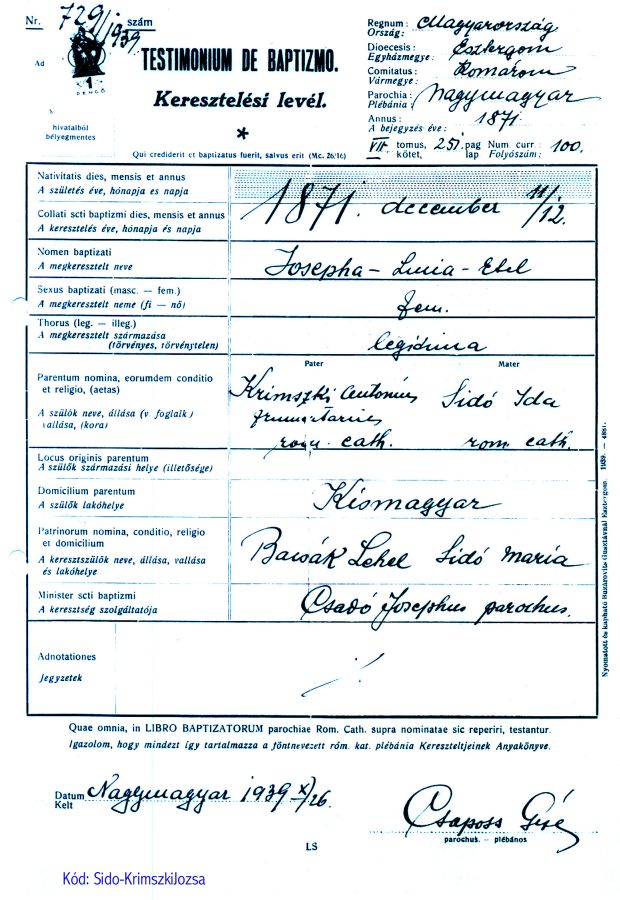 Nr. 729/1939 szám
Ad
1
PENGŐ
hivatalból
bélyegmentes
TESTIMONIUM DE BAPTIZMO.
Keresztelési levél.
*
Qui crediderit et baptizatus fuerit, salvus erit (Mc. 26/16)
Regnum: Magyarország
Ország:
Dioecesis: Esztergom
Egyházmegye:
Comitatus: Komárom
Vármegye:
Parochia: Nagymagyar
Plébánia:
Annus: 1871
A bejegyzés éve:
VII. tomus, 251. pag Num curr. 100.
kötet, lap Folyószám:
Nativitatis dies, mensis et annus
A születés éve, hónapja és napja
Collati scti baptizmi dies, mensis et annus
A keresztelés éve, hónapja és napja
1871. december 11/12.
Nomen baptizati
A megkeresztelt neve
Josepha - Lucia - Etel
Sexus baptizati (masc. — fem.)
A megkeresztelt neme (fi — nő)
fem.
Thorus (leg. — illeg.)
A megkeresztelt származása
(törvényes, törvénytelen)
legitima
Pater Mater
Parentum nomina, eorumdem conditio
et religio, (aetas)
A szülők neve, állása (v. foglalk.)
vallása, (kora)
Krimszki Antonius Sidó Ida
rom. cath. rom. cath.
Locus originis parentum
A szülők származási helye (illetősége)
Domicilium parentum
A szülők lakóhelye
Kismagyar
Patrinorum nomina, conditio, religio
et domicilium
A keresztszülők neve, állása, vallása
és lakóhelye
Bacsák Lehel Sidó Maria
Minister scti baptizmi
A keresztség szolgáltatója
Csadó Josephus parochus.
Adnotationes
Jegyzetek
Quae omnia, in LIBRO BAPTIZATORUM parochiae Rom. Cath. supra nominatae sic reperiri, testantur.
Igazolom, hogy mindezt így tartalmazza a föntnevezett róm. kat. plébánia Kereszteltjeinek Anyakönyve.
Datum Nagymagyar 1939 X/26.
Kelt
Csaposs Gézé
parochus. - plébános
LS
Kód: Sido-KrimszkiJozsa